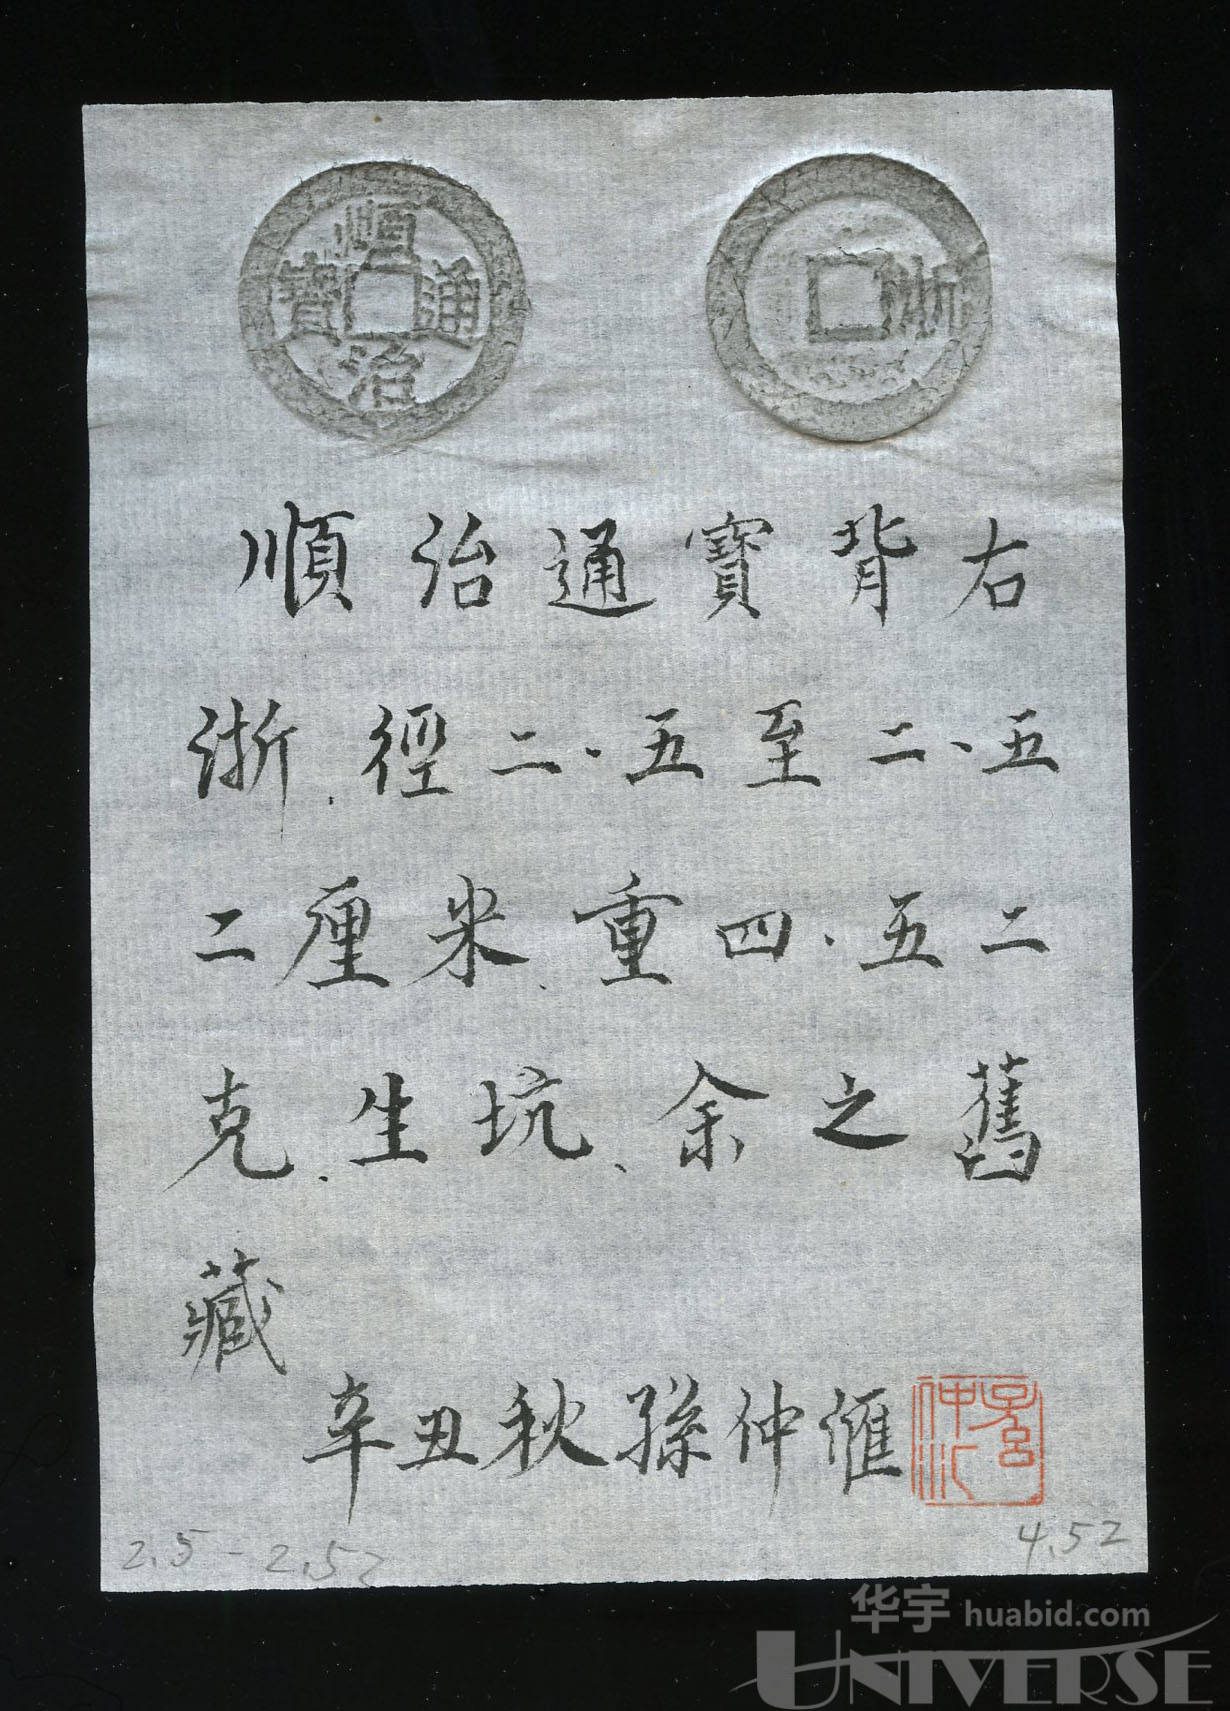 順治通寶
浙
順治通寶背右
浙、徑二、五至二、五
二厘米、重四、五二
克、生坑、余之舊
藏
辛丑秋孫仲匯
2.5-2.52
4.52
华宇 huabid.com
UNIVERSE